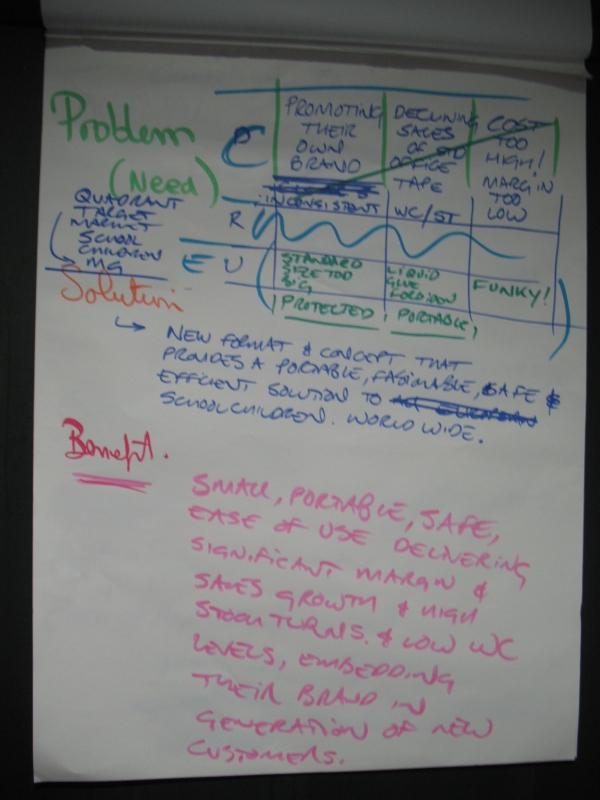 Problem
(Need)
QUADRANT
TARGET
MARKET
SCHOOL
CHILDREN
MG
C
PROMOTING
THEIR
OWN
BRAND
DECLINING
SALES
OF STD
OFFICE
TAPE
COST
TOO
HIGH!
MARGIN
TOO
LOW
R
INCONSISTENT
WC/ST
E U
STANDARD
SIZE TOO
BIG
LIQUID
GLUE
FUNKY!
PROTECTED
PORTABLE
Solution
NEW FORMAT & CONCEPT THAT
PROVIDES A PORTABLE, FASIONABLE, SAFE &
EFFICIENT SOLUTION TO
SCHOOLCHILDREN. WORLD WIDE.
Benefit.
SMALL, PORTABLE, SAFE,
EASE OF USE DELIVERING
SIGNIFICANT MARGIN &
SALES GROWTH & HIGH
STOCK TURNS. & LOW WC
LEVELS, EMBEDDING
THEIR BRAND IN
GENERATION OF NEW
CUSTOMERS.